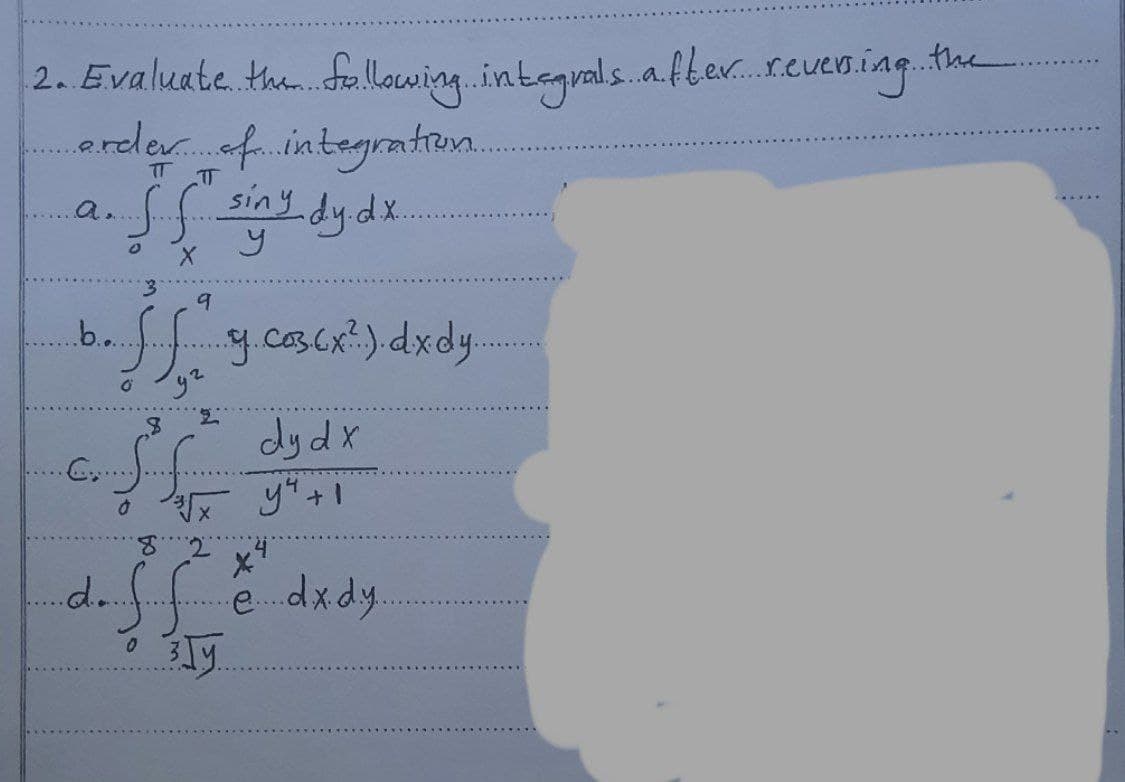 2. Evaluate the following integrals after reversing the
order of integration
a. ∫₀^π ∫ₓ^π (sin y / y) dy dx
b. ∫₀³ ∫_{y²}^9 y cos(x²) dx dy
c. ∫₀⁸ ∫_{∛x}^2 dy dx / (y⁴ + 1)
d. ∫₀⁸ ∫_{∛y}^2 e^{x⁴} dx dy